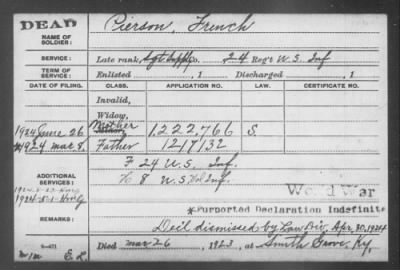 DEAD
NAME OF SOLDIER:
Pierson, French
SERVICE: Late rank, Sgt Supply Co. 24 Reg't U.S. Inf
TERM OF SERVICE: Enlisted , 1 Discharged , 1
DATE OF FILING. CLASS. APPLICATION NO. LAW. CERTIFICATE NO.
Invalid,
Widow,
1924 June 26 Mother 1,222,766 S.
*1924 Mar 8. Father 1217132
F 24 U.S. Inf.
ADDITIONAL SERVICES:
H 8 U.S. Vol Inf.
World War
*Purported Declaration Indefinite
REMARKS:
dismissed by Law Div, Apr. 30, 1924
Died Mar 26, 1923, at Smith Grove, Ky.